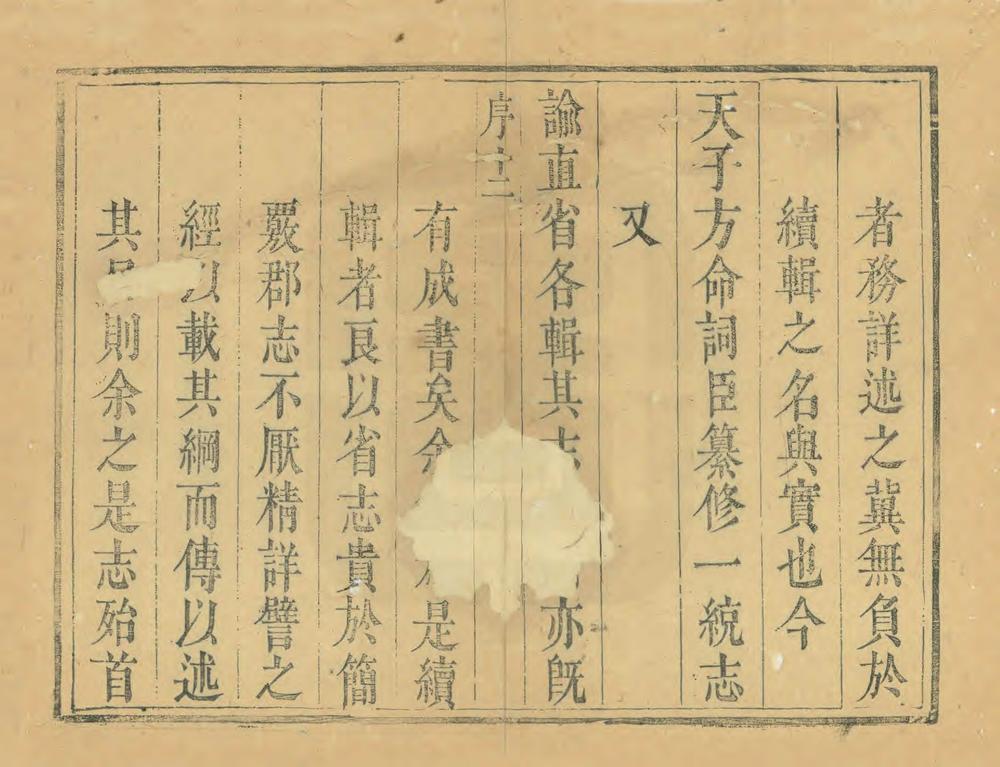 者務詳述之冀無負於
續輯之名與實也今
天子方命詞臣纂修一統志
又
諭直省各輯其志亦既
序十二
有成書矣余是續
輯者良以省志貴於簡
覈郡志不厭精詳譬之
經以載其綱而傳以述
其則余之是志殆首